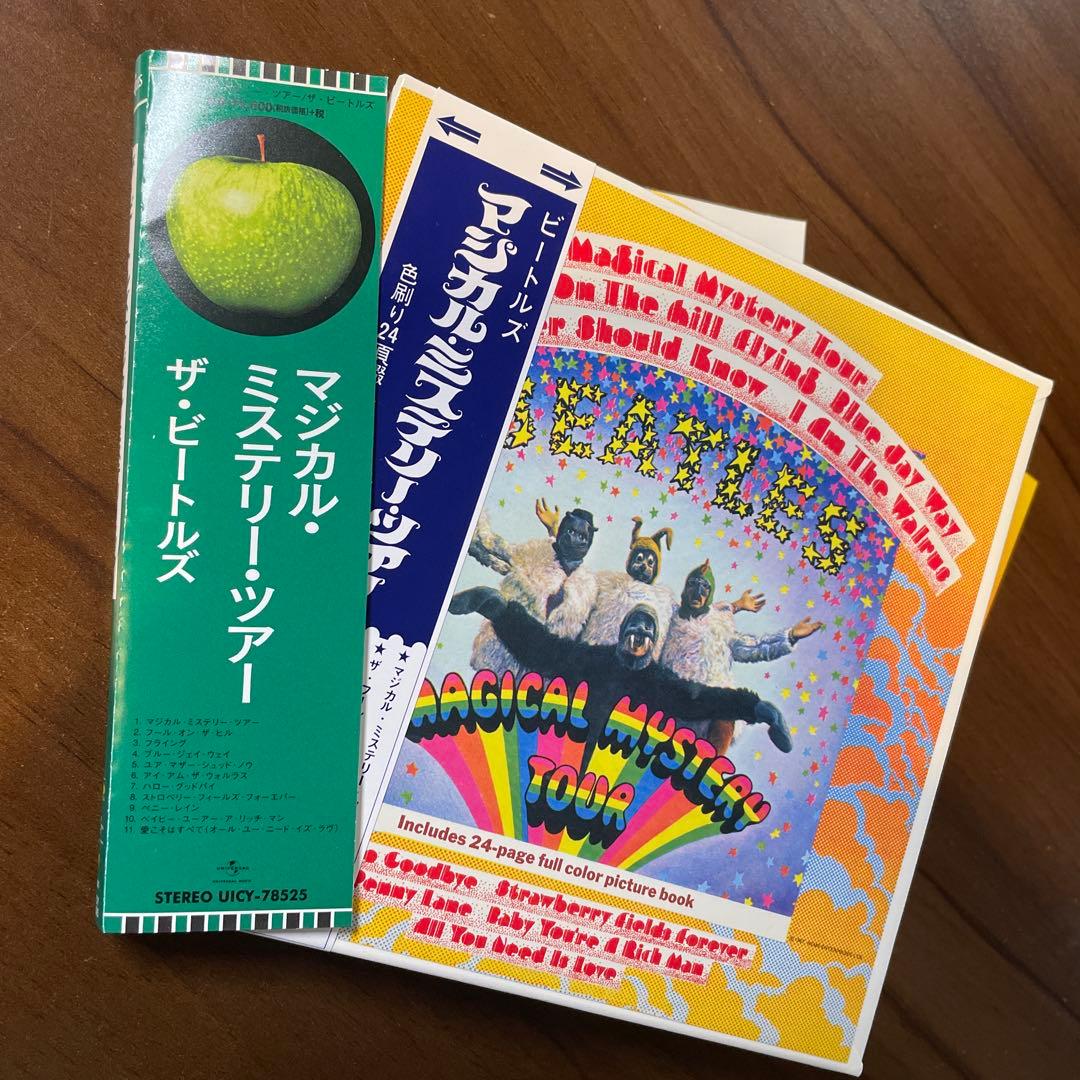 ツアー/ザ・ビートルズ
,600(税抜価格)+税
マジカル・
ミステリー・ツアー
ザ・ビートルズ
1. マジカル・ミステリー・ツアー
2. フール・オン・ザ・ヒル
3. フライング
4. ブルー・ジェイ・ウェイ
5. ユア・マザー・シュッド・ノウ
6. アイ・アム・ザ・ウォルラス
7. ハロー・グッドバイ
8. ストロベリー・フィールズ・フォーエバー
9. ペニー・レイン
10. ベイビー・ユーアー・ア・リッチ・マン
11. 愛こそはすべて(オール・ユー・ニード・イズ・ラヴ)
UNIVERSAL
UNIVERSAL MUSIC
STEREO UICY-78525
ビートルズ
マジカル・ミステリー・ツアー
色刷り24頁綴
★マジカル・ミステリー・
★ザ・フ
Magical Mystery Tour
On The Hill Flying Blue Jay Way
er Should Know I Am The Walrus
BEATLES
MAGICAL MYSTERY
TOUR
Includes 24-page full color picture book
o Goodbye Strawberry Fields Forever
Penny Lane Baby You're A Rich Man
All You Need Is Love